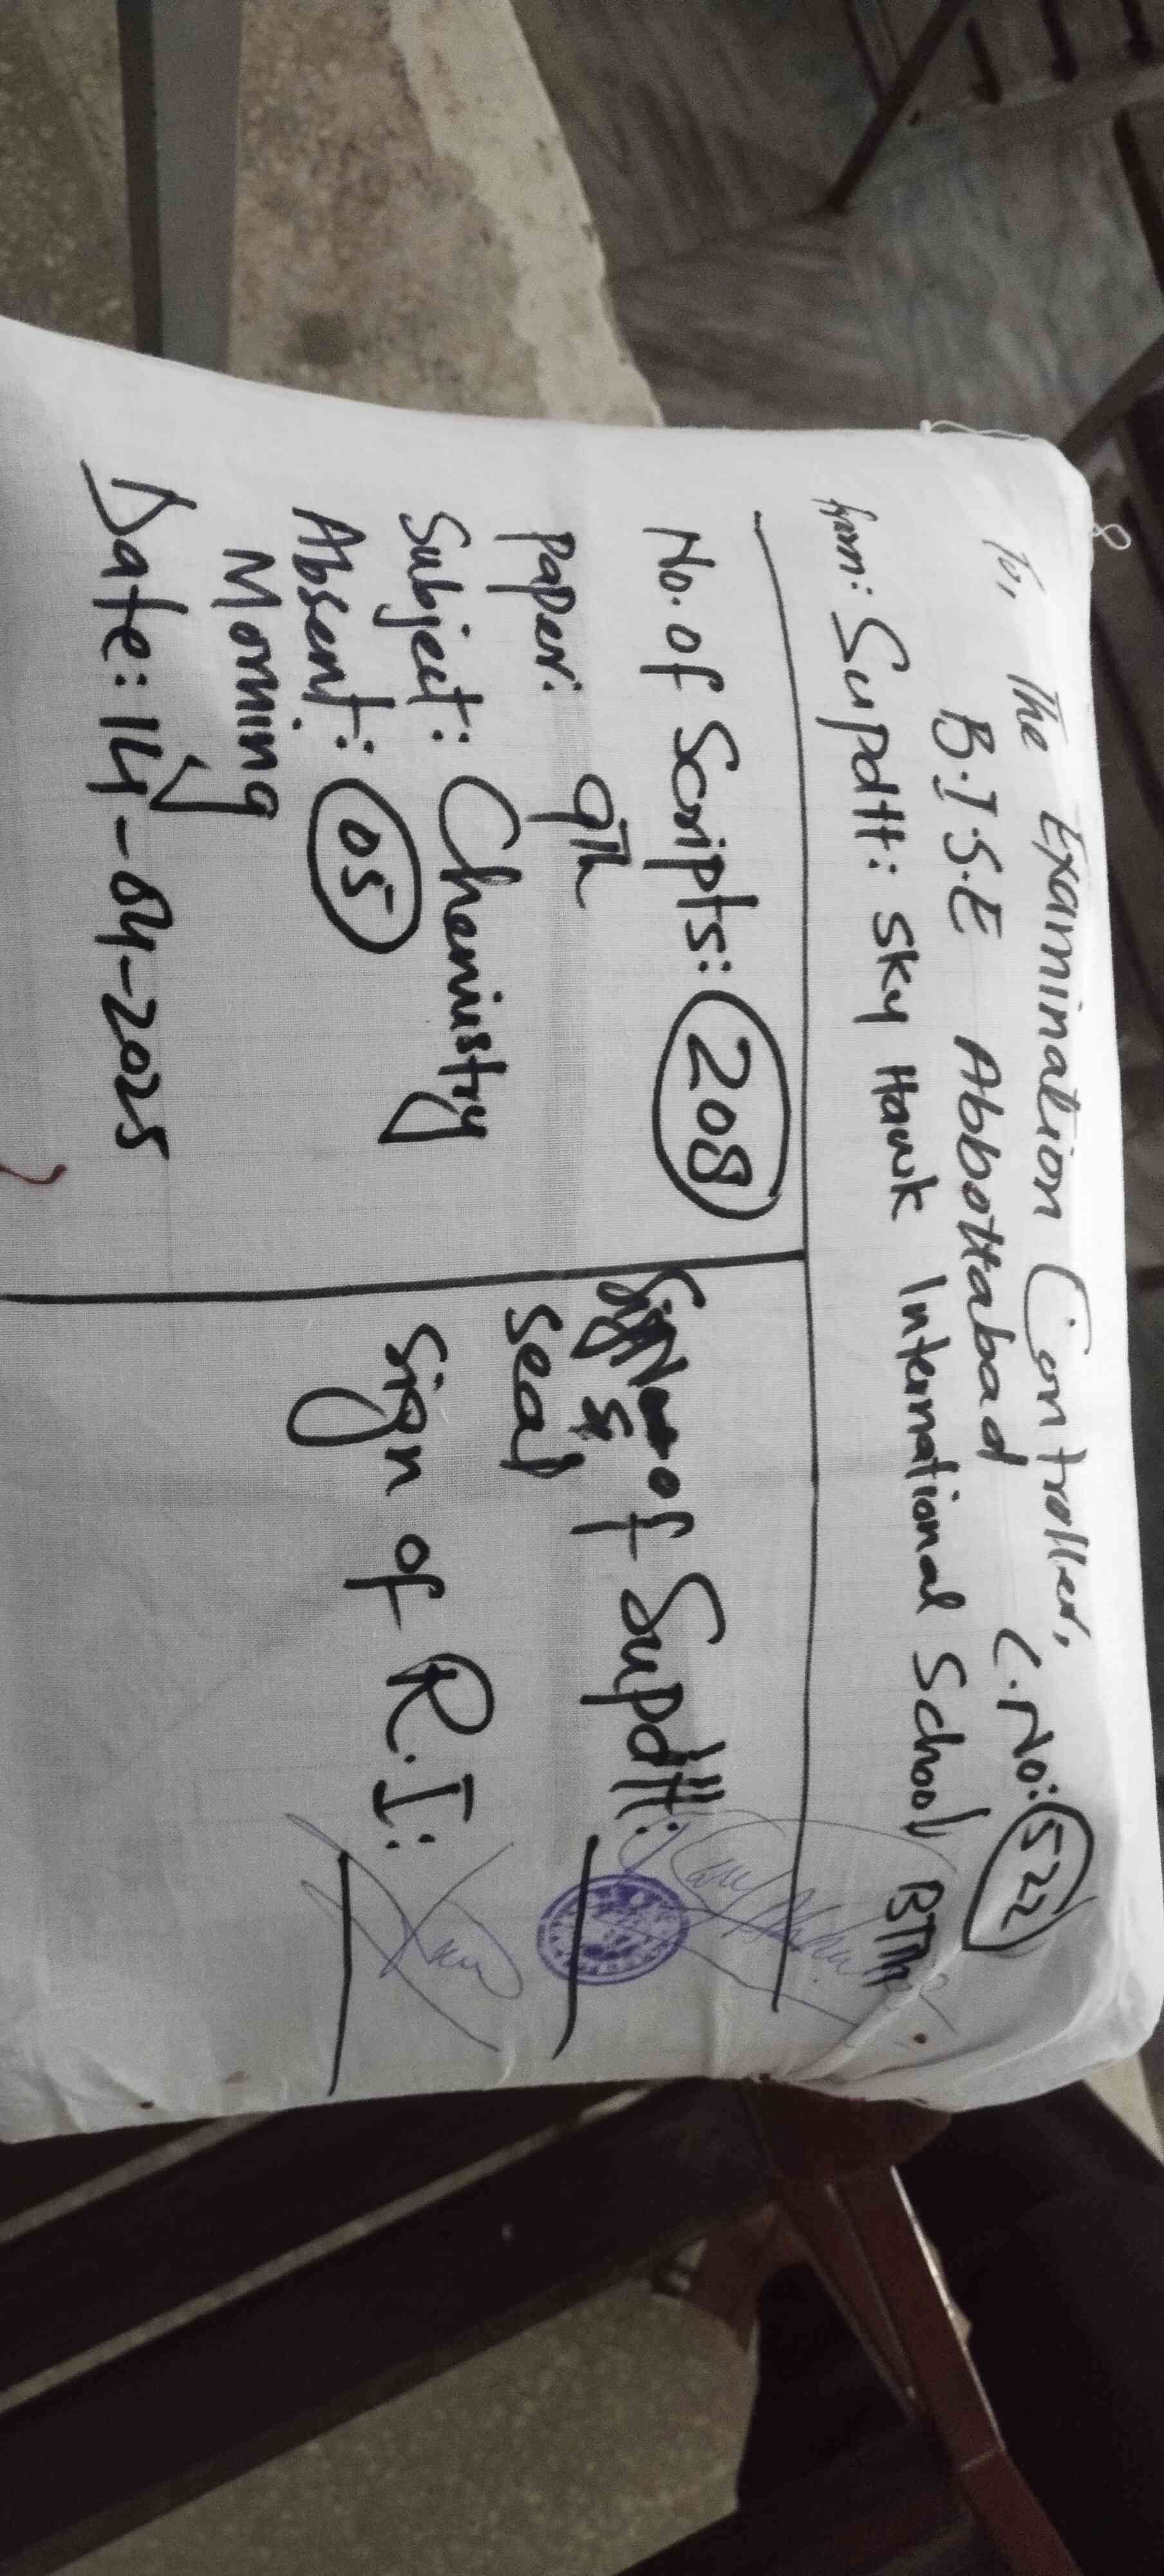 To, The Examination Controller,
B.I.S.E Abbottabad C.No: 522
from: Supdtt: Sky Hawk International School
No. of Scripts: 208
Paper: 9th
Subject: Chemistry
Absent: 05
Morning
Date: 14-04-2025
of Supdtt:
&
seal
Sign of R.I: